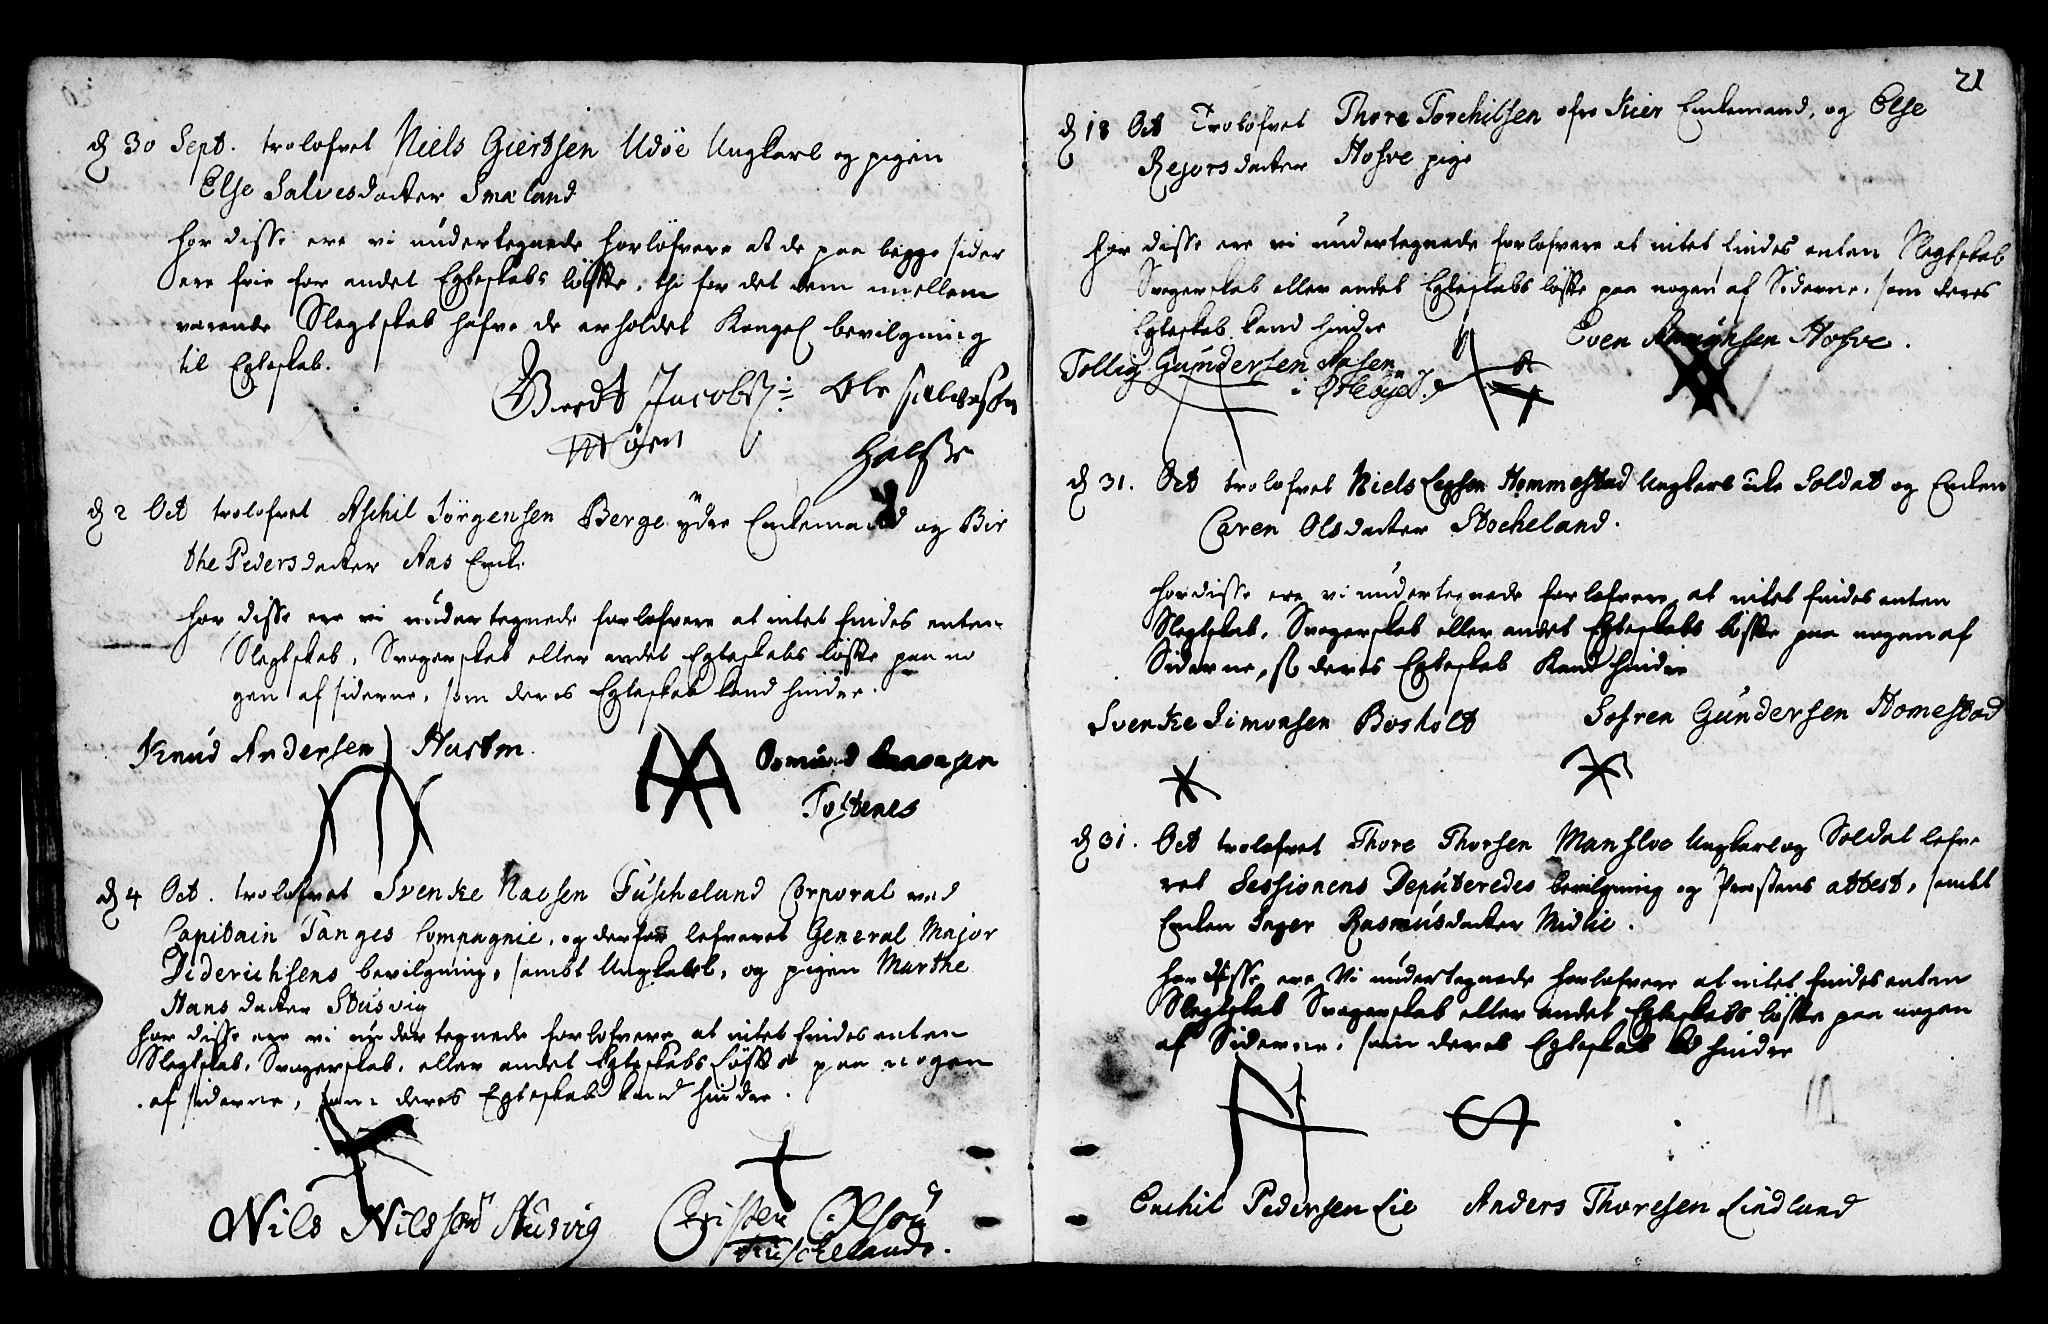 d 30 Sept. trolofvet Niels Giertsen Udöe Ungkarl og pigen
Else Salvesdatter Smaland
For disse ere vi undertegnede forlofvere at de paa begge sider
ere frie for andet Egteskabs löfte, thi for det dem imellem
værende Slegtskab hafve de erholdet Kongel bevilgning
til Egteskab.
Giert Jacobs: Ole Salvessen
Möen Halsse
d 2 Oct trolofvet Aschil Jörgensen Berge ydre Enkemand og Bir
the Pedersdatter Aas Enke
For disse ere vi undertegnede forlofvere at intet findes enten
Slegtskab, Svogerskab eller andet Egteskabs löfte paa no
gen af siderne, som deres Egteskab kand hindre.
Knud Andersen Hastin Osmund Aanonsen
Tostenes
d 4 Oct. trolofvet Svenke Nilsen Tuscheland Corporal ved
Capitain Tanges Compagnie, og derfor lefveret General Major
Diderichsens bevilgning, samt Ungkarl, og pigen Marthe
Hansdatter Stusvig
For disse ere vi undertegnede forlofvere at intet findes enten
Slegtskab, Svogerskab, eller andet Egteskabs Löfte paa nogen
af siderne, som deres Egteskab kand hindre.
Nils Nilssön Stusvig Christen Olson
Tuschelande.
21
d 18 Oct Trolofvet Thore Torchilsen ofre Kier Enkemand, og Else
Rejersdatter Hofve pige
For disse ere vi undertegnede forlofvere at intet findes enten Slegtskab
Svogerskab eller andet Egteskabs löfte paa nogen af Siderne, som deres
Egteskab kand hindre
Even Amunsen Hofve.
Tollig Gundersen Aasen
i
d 31. Oct trolofvet Niels Legsen Hommestad Ungkarl icke Soldat og Enken
Caren Olsdatter Stocheland.
For disse ere vi undertegnede forlofvere at intet findes enten
Slegtskab, Svogerskab eller andet Egteskabs löfte paa nogen af
Siderne, st deres Egteskab Kand hindre
Svenke Simonsen Bosholt Sofren Gundersen Homestad
d 31. Oct trolofvet Thore Thorsen Mansloe Ungkarl og Soldat lefve
ret Sessionens Deputeredes bevilgning og Præstens attest, samt
Enken Inger Rasmusdatter Midlie.
For disse ere Vi undertegnede forlofvere at intet findes enten
Slegtskab Svogerskab eller andet Egteskabs löfte paa nogen
af Siderne, som deres Egteskab kd hindre
Enchil Pedersen Lie Anders Thoresen Lindland